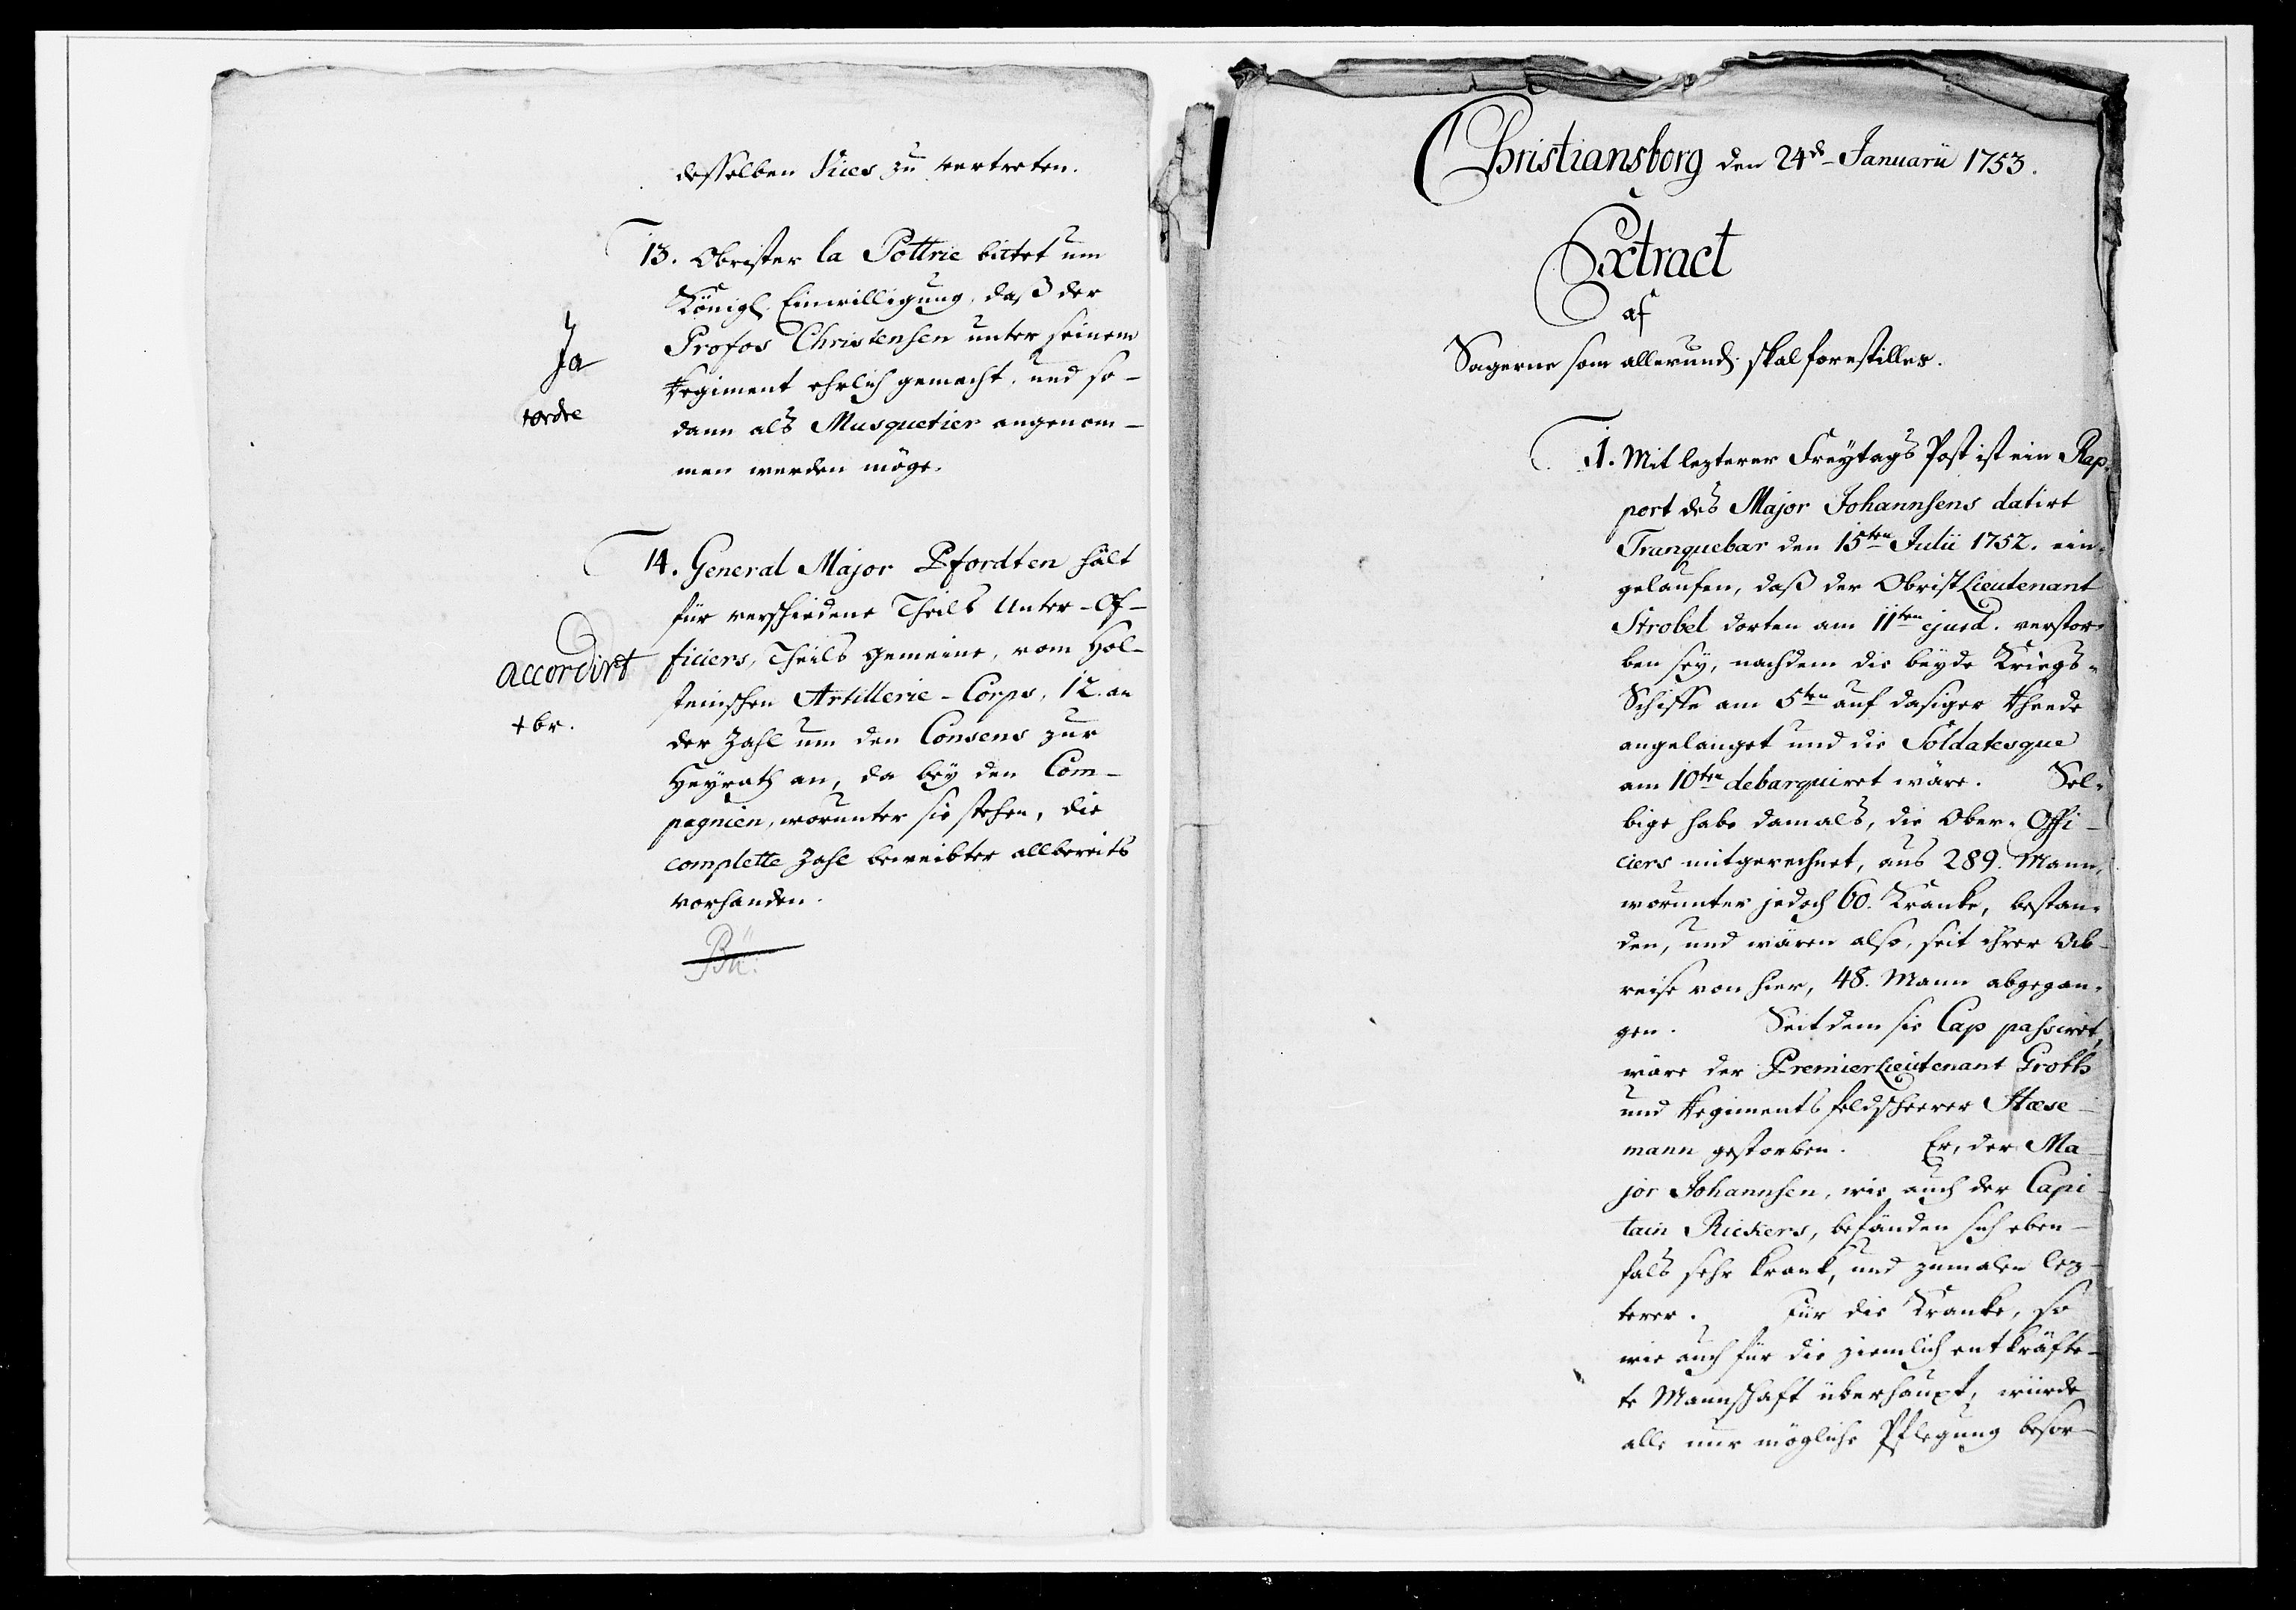 desselben Vices zu vertreten.
13. Obrister la Pottrie bittet um
Königl. Einwilligung, daß der
Profos Christensen unter seinem
Regiment ehrlich gemacht, und so-
dann als Musquetier angenom-
men werden möge.
Ja
+ordre
14. General Major Pfordten hält
für verschiedene Theils Unter-Of-
ficiers, Theils Gemeine, vom Hol-
steinschen Artillerie-Corps, 12. an
der Zahl um den Consens zur
Heyrath an, da bey den Com-
pagnien, worunter sie stehen, die
complette Zahl beweibter allbereits
vorhanden.
accordirt
+br.
Christiansborg den 24de Januarii 1753.
Extract
af
Sagerne som allerund. skal forestilles.
1. Mit lezterer Freytags Post ist ein Rap-
port des Major Johannsens datirt
Tranquebar den 15ten Julii 1752. ein-
gelaufen, daß der ObristLieutenant
Strobel dorten am 11ten ejusd. verstor-
ben sey, nachdem die beyde Kriegs-
Schiffe am 5ten auf dasiger Rheede
angelanget und die Soldatesque
am 10ten debarquiret wäre. Sel-
bige habe damals, die Ober-Offi-
ciers mitgerechnet, aus 289. Mann,
worunter jedoch 60. Kranke, bestan-
den, und wären also, seit ihrer Ab-
reise von hier, 48. Mann abgegan-
gen. Seitdem sie Cap passiret,
wäre der PremierLieutenant Groth
und Regiments feldscheerer Hæse-
mann gestorben. Er, der Ma-
jor Johannsen, wie auch der Capi-
tain Rickers, befänden sich eben-
fals sehr krank, und zumalen lez-
terer. Für die Kranke, so
wie auch für die ziemlich entkräfte-
te Mannschaft überhaupt, würde
alle nur mögliche Pflegung besor-